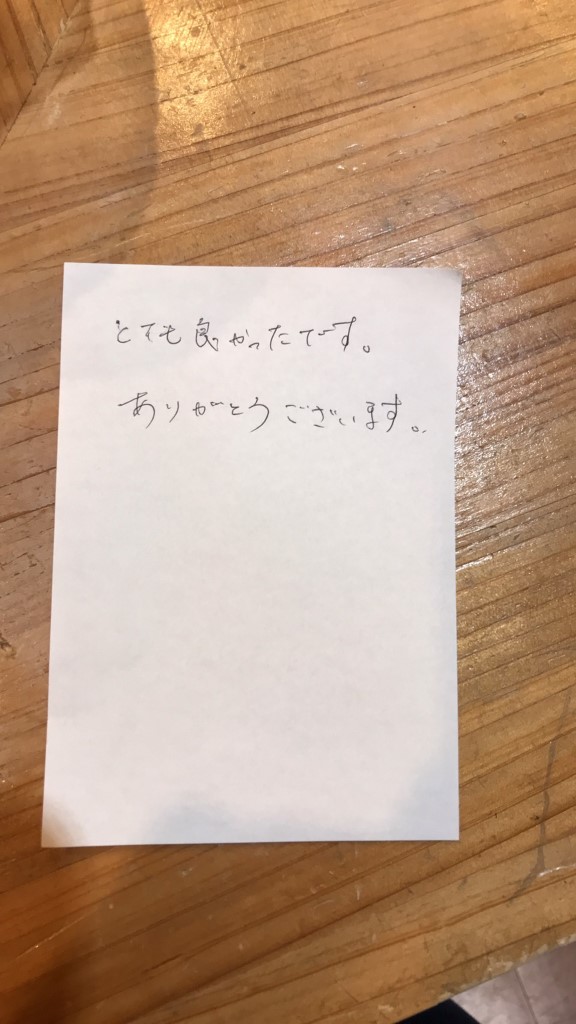 とても良かったです。
ありがとうございます。